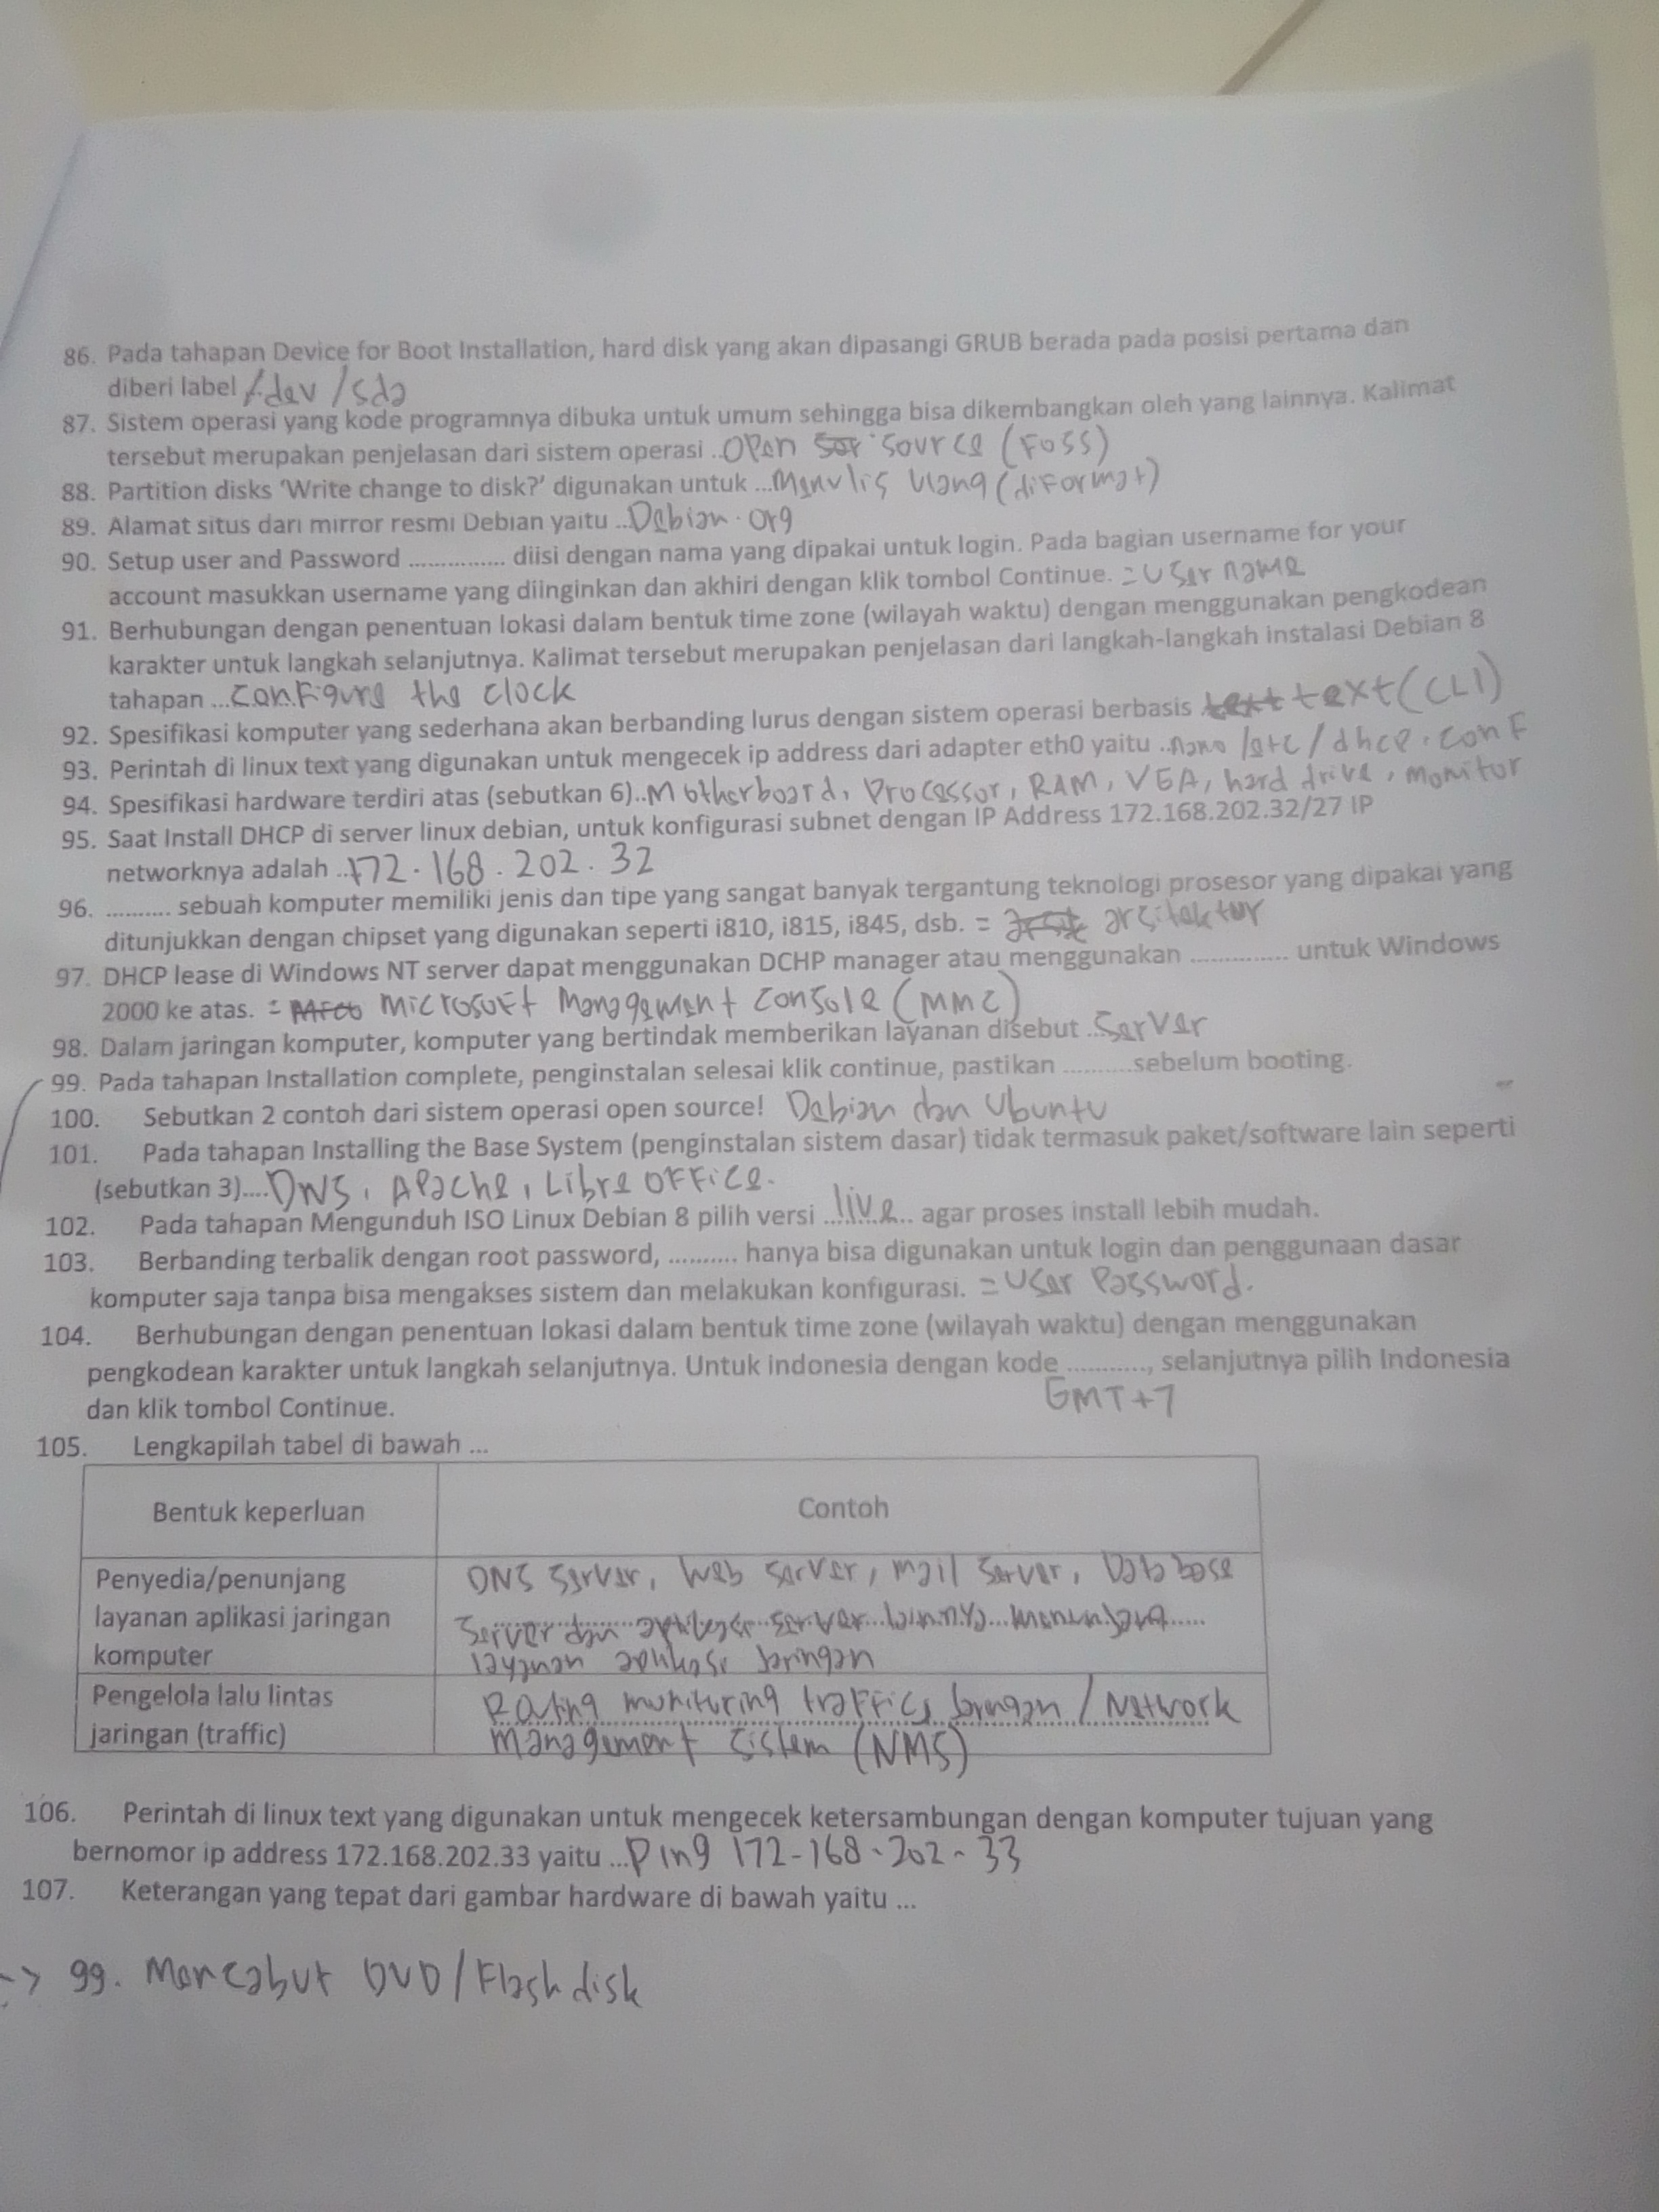 86. Pada tahapan Device for Boot Installation, hard disk yang akan dipasangi GRUB berada pada posisi pertama dan
diberi label /dev/sda
87. Sistem operasi yang kode programnya dibuka untuk umum sehingga bisa dikembangkan oleh yang lainnya. Kalimat
tersebut merupakan penjelasan dari sistem operasi ..Open source (FOSS)
88. Partition disks 'Write change to disk?' digunakan untuk ...Menulis ulang (diformat)
89. Alamat situs dari mirror resmi Debian yaitu ...Debian.org
90. Setup user and Password ............... diisi dengan nama yang dipakai untuk login. Pada bagian username for your
account masukkan username yang diinginkan dan akhiri dengan klik tombol Continue. = User name
91. Berhubungan dengan penentuan lokasi dalam bentuk time zone (wilayah waktu) dengan menggunakan pengkodean
karakter untuk langkah selanjutnya. Kalimat tersebut merupakan penjelasan dari langkah-langkah instalasi Debian 8
tahapan ...Configure the clock
92. Spesifikasi komputer yang sederhana akan berbanding lurus dengan sistem operasi berbasis text text (CLI)
93. Perintah di linux text yang digunakan untuk mengecek ip address dari adapter eth0 yaitu ..nano /etc/dhcp.conf
94. Spesifikasi hardware terdiri atas (sebutkan 6)..Motherboard, Processor, RAM, VGA, hard drive, monitor
95. Saat Install DHCP di server linux debian, untuk konfigurasi subnet dengan IP Address 172.168.202.32/27 IP
networknya adalah ..172.168.202.32
96. .......... sebuah komputer memiliki jenis dan tipe yang sangat banyak tergantung teknologi prosesor yang dipakai yang
ditunjukkan dengan chipset yang digunakan seperti i810, i815, i845, dsb. = arsitektur
97. DHCP lease di Windows NT server dapat menggunakan DCHP manager atau menggunakan .............. untuk Windows
2000 ke atas. = Microsoft Management Console (MMC)
98. Dalam jaringan komputer, komputer yang bertindak memberikan layanan disebut ..Server
99. Pada tahapan Installation complete, penginstalan selesai klik continue, pastikan ..........sebelum booting.
100. Sebutkan 2 contoh dari sistem operasi open source! Debian dan Ubuntu
101. Pada tahapan Installing the Base System (penginstalan sistem dasar) tidak termasuk paket/software lain seperti
(sebutkan 3)....DNS, Apache, Libre Office.
102. Pada tahapan Mengunduh ISO Linux Debian 8 pilih versi ...live.. agar proses install lebih mudah.
103. Berbanding terbalik dengan root password, .......... hanya bisa digunakan untuk login dan penggunaan dasar
komputer saja tanpa bisa mengakses sistem dan melakukan konfigurasi. = User Password.
104. Berhubungan dengan penentuan lokasi dalam bentuk time zone (wilayah waktu) dengan menggunakan
pengkodean karakter untuk langkah selanjutnya. Untuk indonesia dengan kode ..........., selanjutnya pilih Indonesia
GMT+7
dan klik tombol Continue.
105. Lengkapilah tabel di bawah ...
Bentuk keperluan Contoh
Penyedia/penunjang
layanan aplikasi jaringan
komputer
DNS Server, Web Server, Mail Server, Database
Server dan server
layanan aplikasi jaringan
Pengelola lalu lintas
jaringan (traffic)
monitoring traffic jaringan / Network
management sistem (NMS)
106. Perintah di linux text yang digunakan untuk mengecek ketersambungan dengan komputer tujuan yang
bernomor ip address 172.168.202.33 yaitu ...Ping 172-168.202.33
107. Keterangan yang tepat dari gambar hardware di bawah yaitu ...
-> 99. Mencabut DVD/Flashdisk